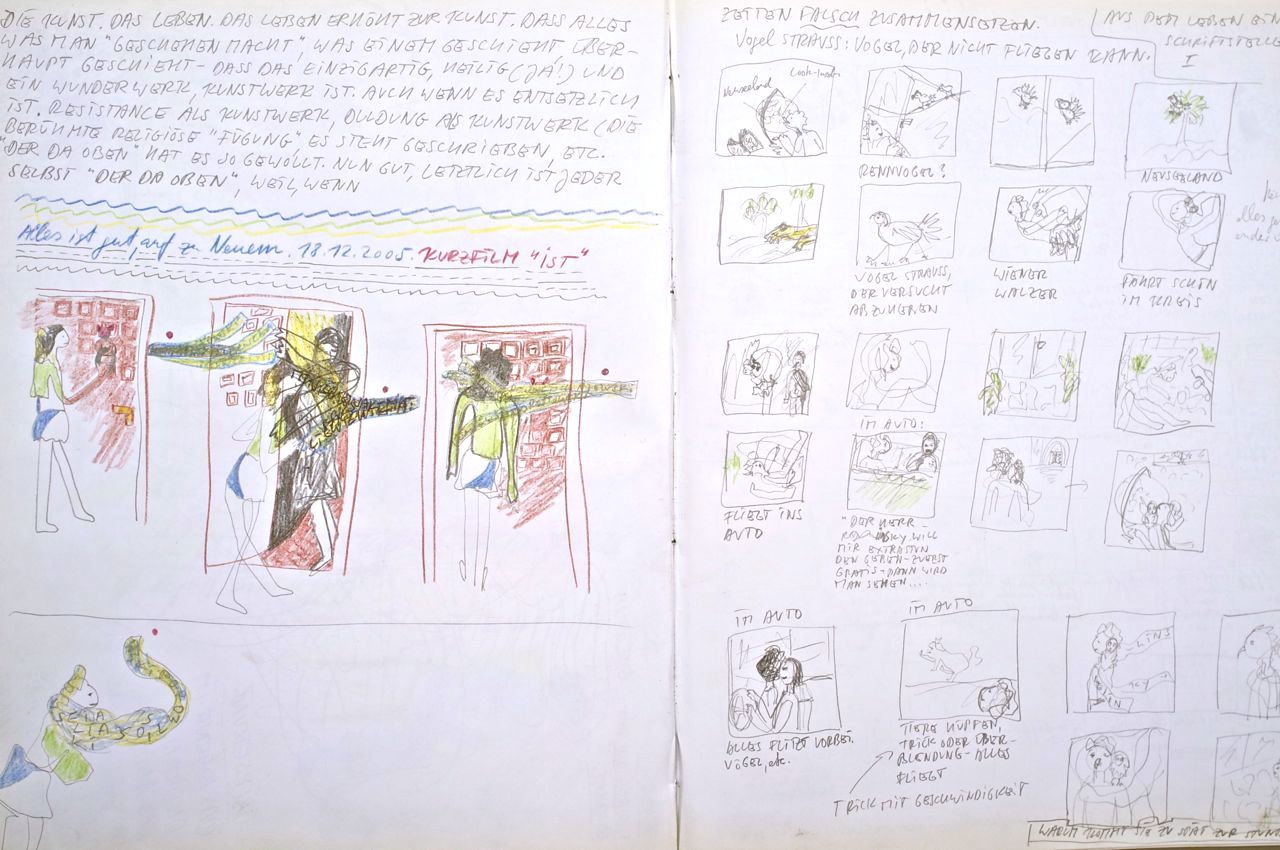 DIE KUNST. DAS LEBEN. DAS LEBEN ERHÖHT ZUR KUNST. DASS ALLES
WAS MAN "GESCHEHEN MACHT", WAS EINEM GESCHIEHT ÜBER-
HAUPT GESCHIEHT – DASS DAS EINZIGARTIG, HEILIG (JA!) UND
EIN WUNDERWERK, KUNSTWERK IST. AUCH WENN ES ENTSETZLICH
IST. RESISTANCE ALS KUNSTWERK, DULDUNG ALS KUNSTWERK (DIE
BERÜHMTE RELIGIÖSE "FÜGUNG", ES STEHT GESCHRIEBEN, ETC.
"DER DA OBEN" HAT ES SO GEWOLLT. NUN GUT, LETZTLICH IST JEDER
SELBST "DER DA OBEN", WEIL, WENN
Alles ist gut, auf zu Neuem. 18.12.2005. KURZFILM "IST"
ZEITEN FALSCH ZUSAMMENSETZEN.
Vogel STRAUSS: VOGEL, DER NICHT FLIEGEN KANN.
AUS DEM LEBEN EIN
SCHRIFTSTELLE
I
Neuseeland
RENNVOGEL?
NEUSEELAND
VOGEL STRAUSS,
DER VERSUCHT
ABZUHEBEN
WIENER
WALZER
FÄHRT SCHON
IM KREIS
FLIEGT INS
AUTO
IM AUTO:
"DER HERR
WILL
MIR EXTRASTUN
DEN GEBEN – ZUERST
GRATIS – DANN WIRD
MAN SEHEN....
IM AUTO
ALLES FLITZT VORBEI.
VÖGEL, etc.
IM AUTO
TIERE HÜPFEN,
TRICK ODER ÜBER-
BLENDUNG – ALLES
FLIEGT
TRICK MIT GESCHWINDIGKEIT
WARUM KOMMT SIE ZU SPÄT ZUR STUN